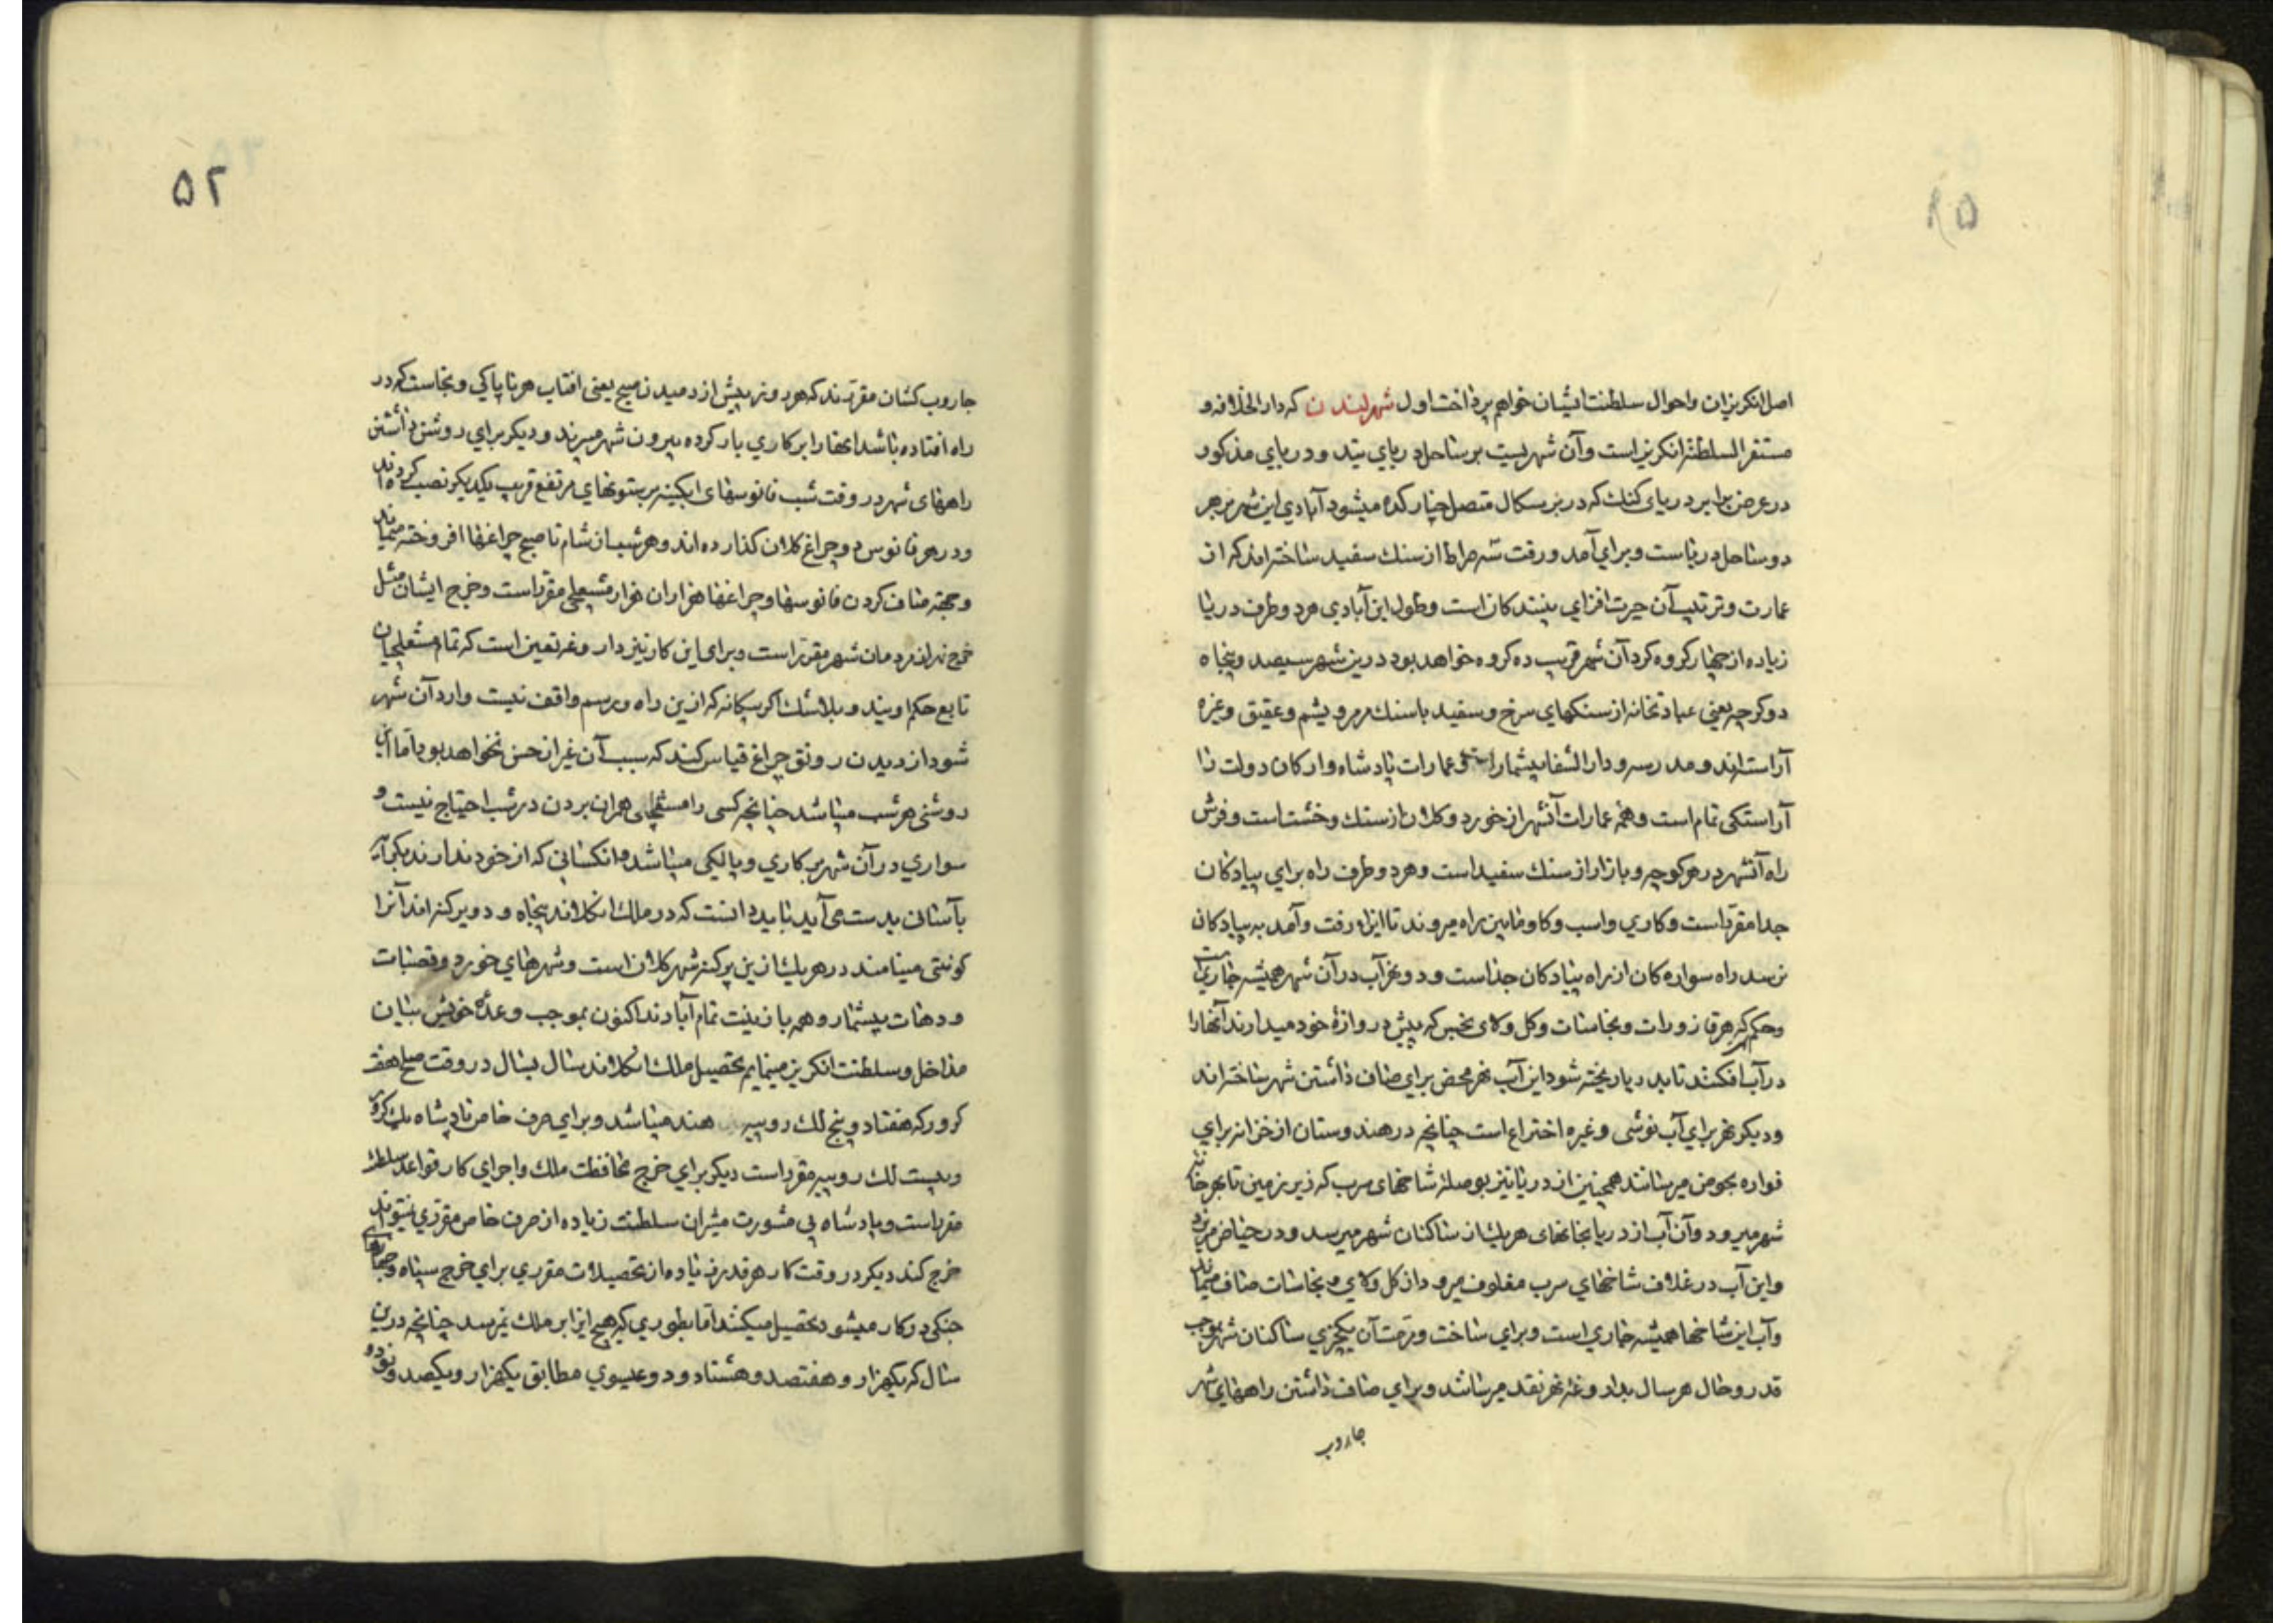 اصل انکریزان واحوال سلطنت ایشان خواهم پرداخت اول شهر لندن که دار الخلافه و
مستقر السلطنة انکریز است وآن شهریست بر ساحل دریای تیند ودریای مذکور
در عرض برابر دریای کنک که در بنکاله متصل میشود آبادی این شهر بر هر
دو ساحل دریاست وبرای آمد ورفت سه صراط از سنک سفید ساخته اند که از
عمارت وترتیب آن حیرت افزای بینندکان است وطول این آبادی هر دو طرف دریا
زیاده از چهار کروه کرد آن شهر قریب ده کروه خواهد بود درین شهر سیصد وپنجاه
دو کرجه یعنی عبادتخانه از سنکهای سرخ وسفید با سنک مرمر ویشم وعقیق وغیره
آراسته اند ومدرسه ودار الشفا بیشمار است وعمارات پادشاه وارکان دولت را
آراستکی تمام است وهمه عمارات آنشهر از خورد وکلان از سنک وخشت است وفرش
راه آنشهر در هر کوچه وبازار از سنک سفید است وهر دو طرف راه برای پیادکان
جدا مقرر است وکاری واسب وکاو مابین راه میروند تا ایذا رفت وآمد به پیادکان
نرسد راه سواره کان از راه پیادکان جداست ودو نهر آب در آن شهر همیشه جاریست
وحکم که هر قازورات ونجاسات وکل ولای نجس که پیش دروازۀ خود میدارند آنهارا
در آب افکنند تا بدریا ریخته شود این آب نهر محض برای صاف داشتن شهر ساخته اند
ودیکر نهر برای آب نوشی وغیره اختراع است چنانچه در هندوستان از خزانه برای
فواره بحوض میرسانند همچنین از دریا نیز بوصلۀ شاخهای سرب که زیر زمین تا بهر خانه
شهر میرود وآن آب از دریا بخانهای هر یک از ساکنان شهر میرسد ودر حیاض میریزد
واین آب در غلاف شاخهای سرب مغلوف میرود از کل ولای ونجاسات صاف میماند
وآب این شاخها همیشه جاری است وبرای ساخت ومرمت آن یکچیزی ساکنان شهر بموجب
قدر وحال هر سال بداروغۀ نهر نقد میرسانند وبرای صاف داشتن راههای شهر
جاروب
۵۲
جاروب کشان مقررند که هر روز پیش از دمیدن صبح یعنی افتاب هر ناپاکی ونجاست که در
راه افتاده باشد انهارا بر کاری بار کرده بیرون شهر میبرند ودیکر برای روشن داشتن
راههای شهر در وقت شب فانوسهای ابکینه بر ستونهای مرتفع قریب یکدیکر نصب کرده اند
ودر هر فانوس دو چراغ کلان کذارده اند وهر شب از شام تا صبح چراغها افروخته میمانند
وجهته صاف کردن فانوسها وچراغها هزاران هزار مشعلچی مقرر است وخرج ایشان مثل
خرج نهر از مردمان شهر مقرر است وبرای این کار نیز داروغه تعین است که تمام مشعلچیان
تابع حکم اویند وبلاشک اکر بیکانه که ازین راه ورسم واقف نیست وارد آن شهر
شود از دیدن رونق چراغ قیاس کند که سبب آن غیر از جشن نخواهد بود اما این
روشنی هر شب میباشد چنانچه کسی را مشعلچی همراه بردن در شب احتیاج نیست و
سواری در آن شهر بر کاری وپالکی میباشد وانکسانی که از خود ندارند بکرایه
بآسانی بدست می آید باید دانست که در ملک انکلاند پنجاه ودو پرکنه اند آنرا
کونتی مینامند در هر یک ازین پرکنه شهر کلان است وشهرهای خورد وقصبات
ودهات بیشمار وهمه با زینت تمام آبادند اکنون بموجب وعدۀ خویش بیان
مداخل وسلطنت انکریز مینمایم تحصیل ملک انکلاند سال بسال در وقت صلح هفت
کرور که هفتاد وپنج لک روپیه هند میباشد وبرای صرف خاص پادشاه یک کرور
وبیست لک روپیه مقرر است دیکر برای خرج محافظت ملک واجرای کار قواعد سلطنت
مقرر است وپادشاه بی مشورت مشیران سلطنت زیاده از صرف خاص مقرری نمیتواند
خرج کند دیکر در وقت کار هر قدر زر زیاده از تحصیلات مقرری برای خرج سپاه وجهازهای
جنکی درکار میشود تحصیل میکنند اما بطوری که هیچ ایذا بر ملک نمیرسد چنانچه درین
سال که یکهزار وهفتصد وهشتاد ودو عیسوی مطابق یکهزار ویکصد ونود و